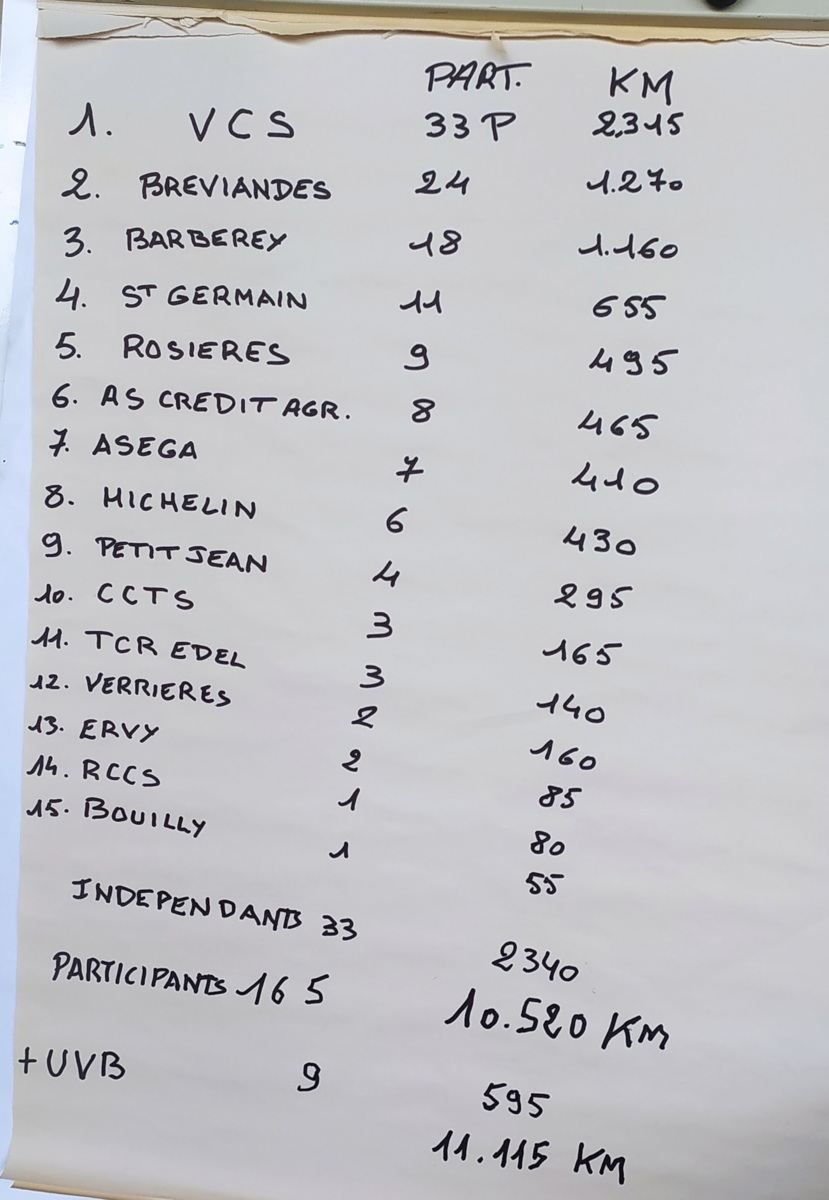 PART. KM
1. VCS 33 P 2.315
2. BREVIANDES 24 1.270
3. BARBEREY 18 1.160
4. ST GERMAIN 11 655
5. ROSIERES 9 495
6. AS CREDIT AGR. 8 465
7. ASEGA 7 410
8. MICHELIN 6 430
9. PETITJEAN 4 295
10. CCTS 3 165
11. TCR EDEL 3 140
12. VERRIERES 2 160
13. ERVY 2 85
14. RCCS 1 80
15. BOUILLY 1 55
INDEPENDANTS 33 2340
PARTICIPANTS 165 10.520 KM
+ UVB 9 595
11.115 KM